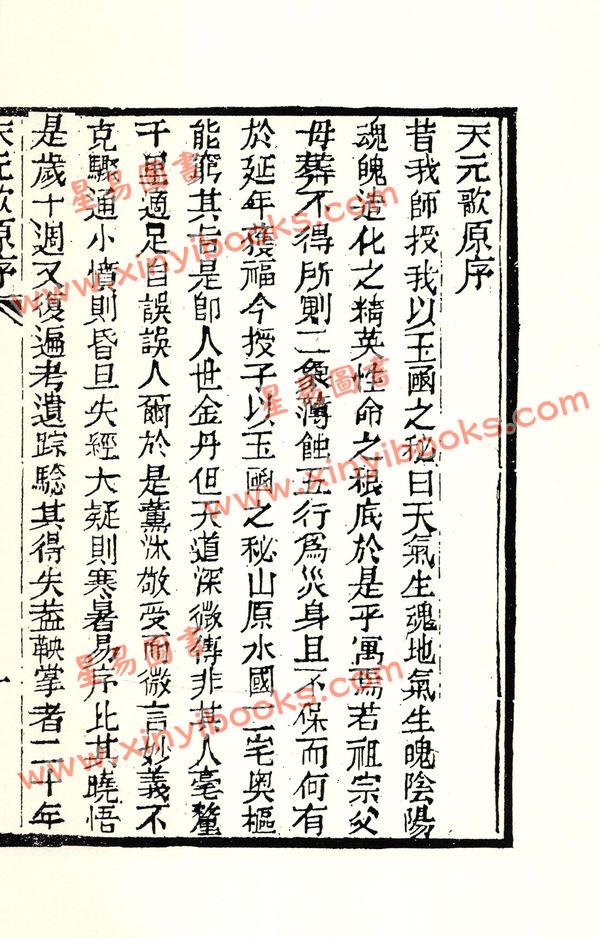 天元歌原序
昔我師授我以玉函之秘曰天氣生魂地氣生魄陰陽
魂魄造化之精英性命之根底於是乎寓焉若祖宗父
母葬不得所則二象薄蝕五行為災身且不保而何有
於延年獲福今授子以玉函之秘山原水國二宅奧樞
能窮其旨是即人世金丹但天道深微傳非其人毫釐
千里適足自誤誤人爾於是薰沐敬受而微言妙義不
克驟通小憤則昏旦失經大疑則寒暑易序比其曉悟
是歲十週又復遍考遺踪驗其得失益鞅掌者二十年
天元歌原序
一
星易图書
www.xinyibooks.com
星易图書
www.xinyibooks.com
星易图書
www.xinyibooks.com